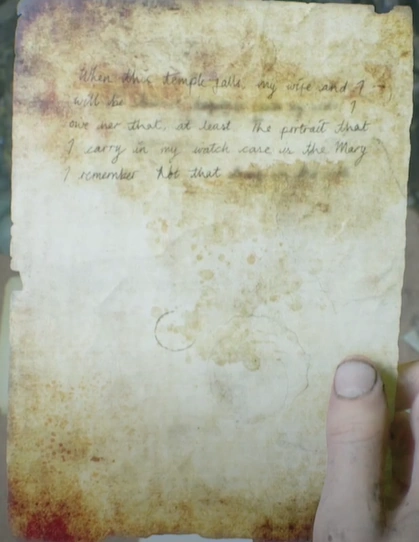 When this temple falls, my wife and I
will be I
owe her that, at least. The portrait that
I carry in my watch case is the Mary
I remember. Not that